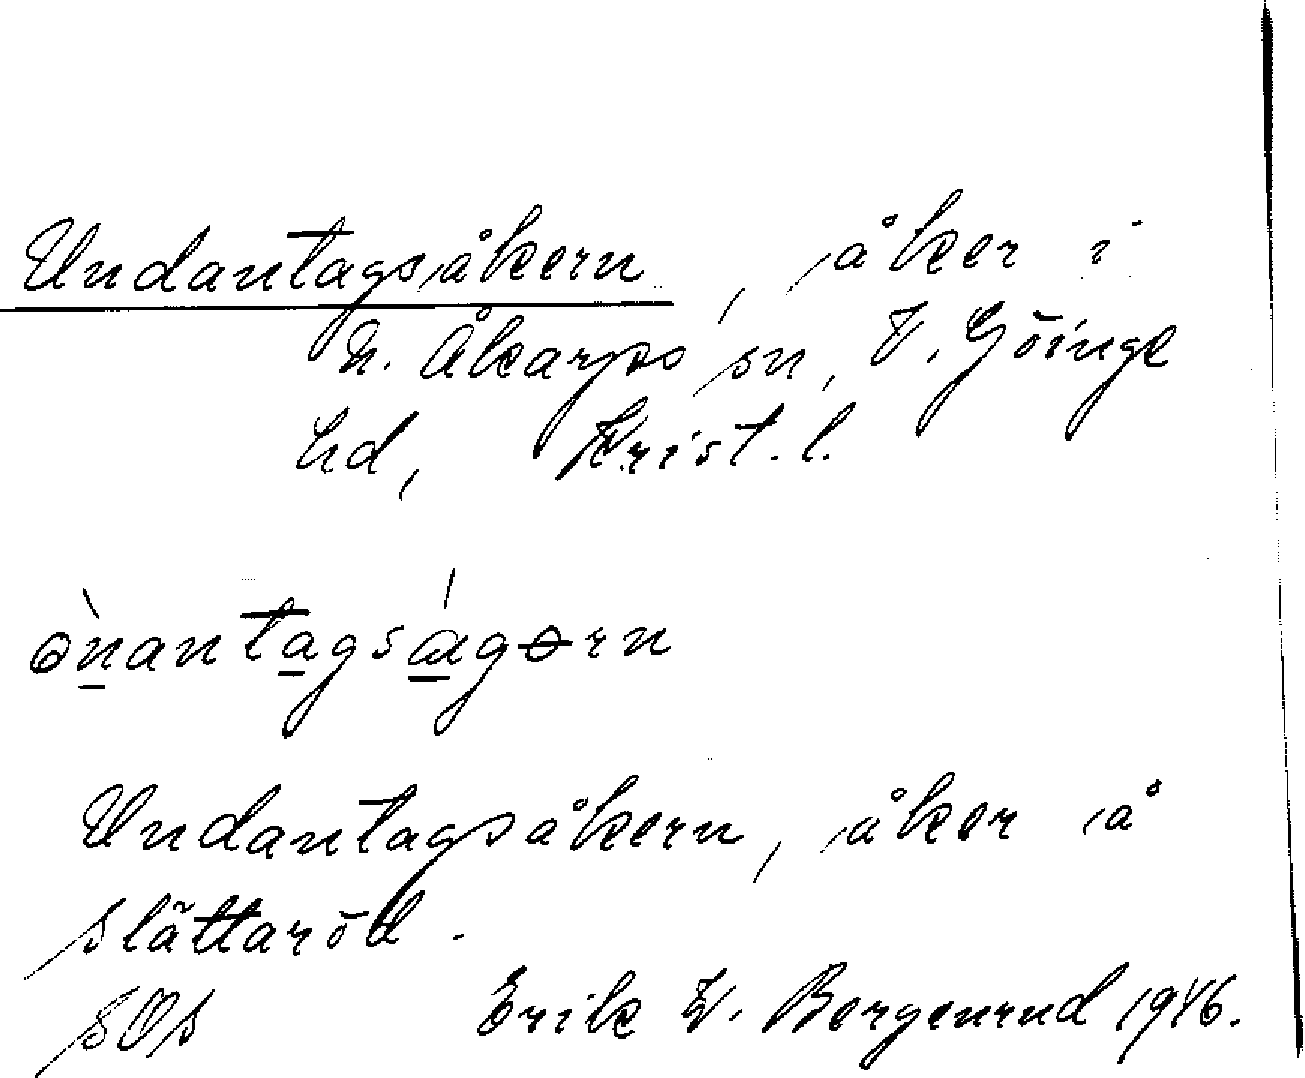 Undantagsåkern, åker i
N. Åkarps sn, V. Göinge
hd, Krist. l.
ònantagságørn
Undantagsåkern, åker å
Slättaröd.
SOs Erik W. Bergenrud 1946.